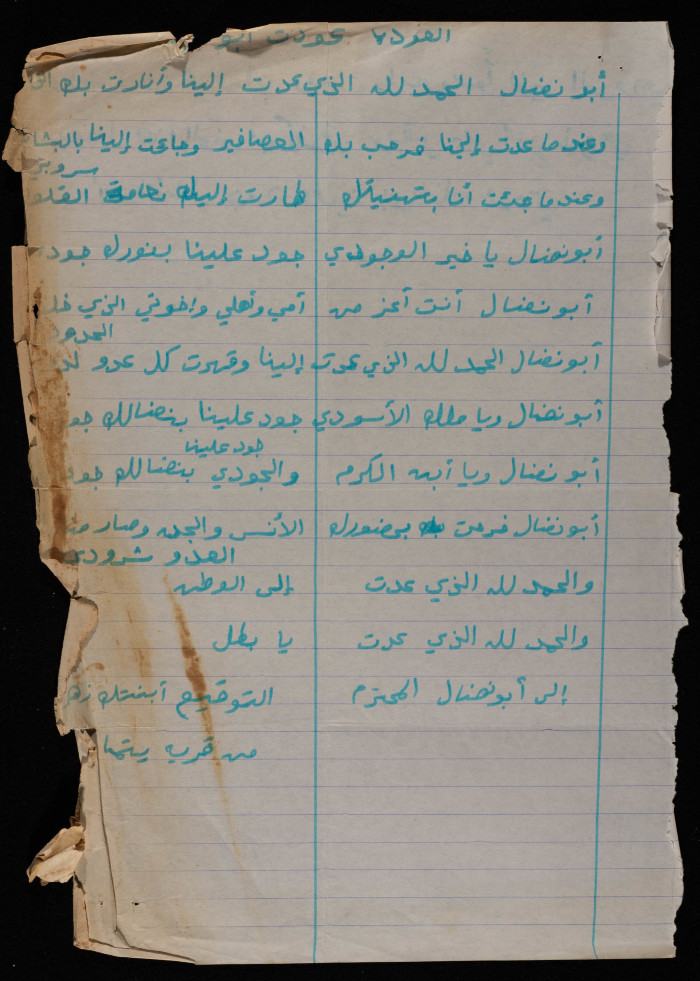 العودة عودت أبو
أبو نضال الحمد لله الذي عدت إلينا وأنارت بك
وعندما عدت إلينا فرحب بك العصافير وجاءت إلينا
وعندما جئت أنا بتهنيتك طارت إليك نعامة
أبو نضال يا خير الوجودي جود علينا بنورك جود
أبو نضال أنت أعز من أمي وأهلي وإخوتي الذي
أبو نضال الحمد لله الذي عدت إلينا وقهرت كل عدو
أبو نضال ويا ملك الأسودي جود علينا بنضالك
جود علينا
أبو نضال ويا أبن الكرم والجودي بنضالك جود
أبو نضال فرحت بحضورك الأنس والجن وصار
العدو شرودي
والحمد لله الذي عدت إلى الوطن
والحمد لله الذي عدت يا بطل
إلى أبو نضال المحترم التوقيع أبنتك
من قرية يتما